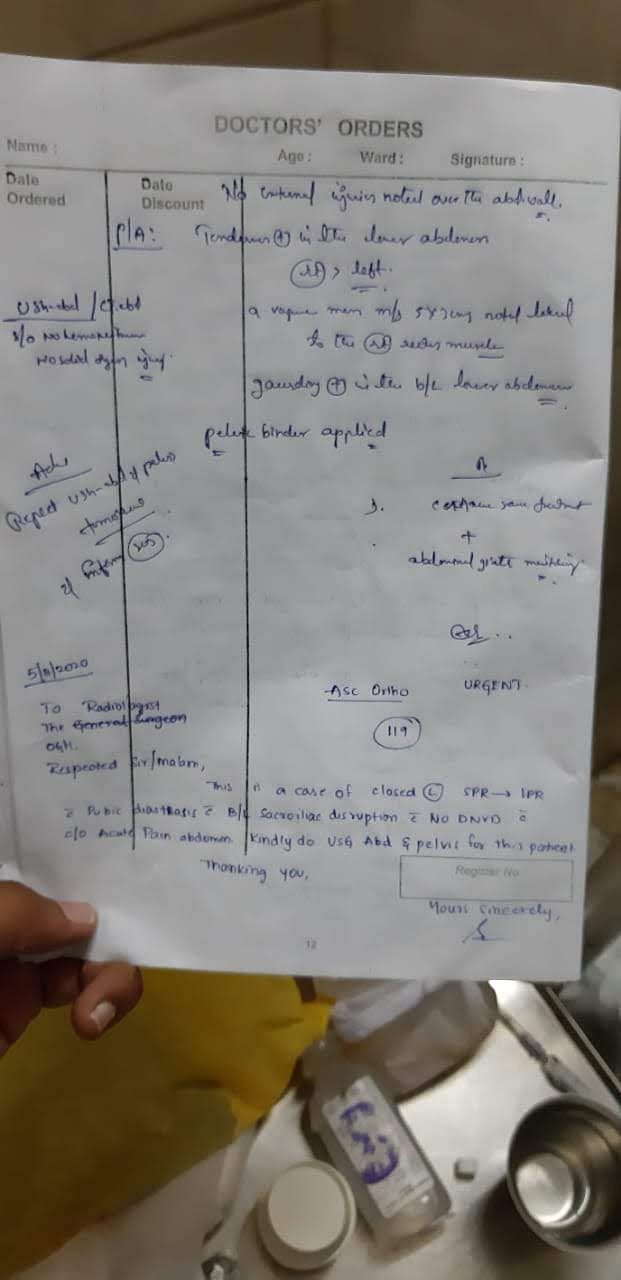 DOCTORS' ORDERS
Name : Age : Ward : Signature :
Date Ordered
Date Discount
No external injuries noted over the abd wall.
P/A: Tenderness (+) in the lower abdomen
(Rt) > left.
USG-abd / CT abd
s/o No hemoperitoneum
No solid organ injury.
a vague mass m/s 5x7cm noted lateral
to the (Rt) rectus muscle
gaurding (+) in the b/L lower abdomen
pelvic binder applied
Adv
Repeat USG-abd & pelvis
tomorrow
& Inform
+
abdominal girth
5/8/2020
Asc Ortho
URGENT
119
To Radiologist
The General Surgeon
OGH.
Respected Sir/Madam,
This is a case of closed (L) SPR → IPR
c̄ Pubic diasthasis c̄ B/L Sacroiliac disruption c̄ NO DNVD c̄
c/o Acute Pain abdomen. Kindly do USG Abd & pelvis for this patient
Thanking you,
Register No
Yours sincerely,
12